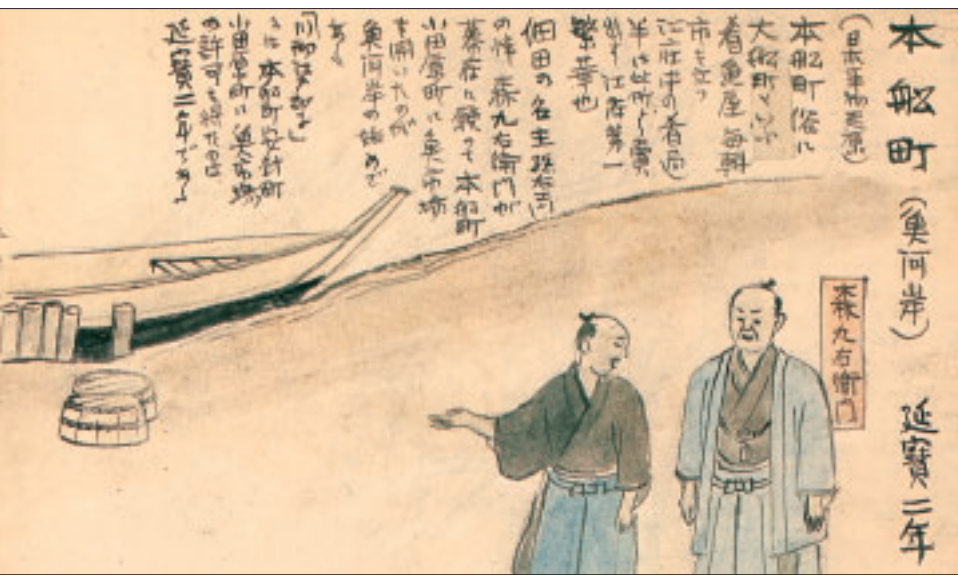 本舩町(魚河岸) 延寶二年
本舩町俗に
大舩町と
肴魚屋毎朝
市を立つ
江府中の肴
半は此所より賣
出す 江府第一
繁華也
佃田の名主孫右衛門
の倅 森九右衛門が
幕府に願って本舩町
小田原町に魚市場
を開いたのが
魚河岸の始めで
ある
には 本舩町安針町
小田原町に魚市場
の許可を得たのは
延寶二年である
森九右衛門